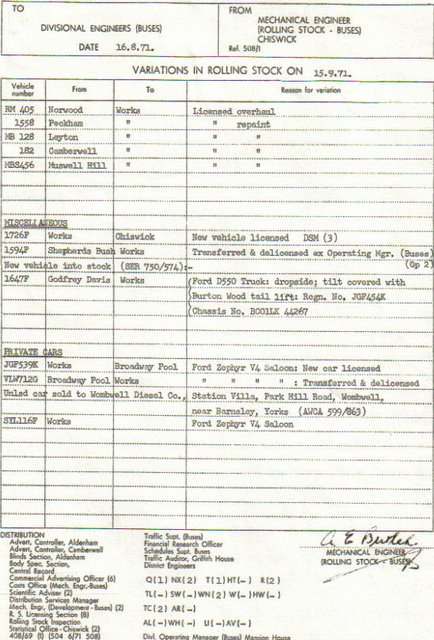 TO
FROM
DIVISIONAL ENGINEERS (BUSES)
MECHANICAL ENGINEER
(ROLLING STOCK - BUSES)
CHISWICK
DATE 16.8.71.
Ref. 508/1
VARIATIONS IN ROLLING STOCK ON 15.9.71.
Vehicle number From To Reason for variation
RM 405 Norwood Works Licensed overhaul
1558 Peckham " " repaint
MB 128 Leyton " " "
182 Camberwell " " "
MBS456 Muswell Hill " " "
MISCELLANEOUS
1726F Works Chiswick New vehicle licensed DSM (3)
1594F Shepherds Bush Works Transferred & delicensed ex Operating Mgr. (Buses)
New vehicle into stock (SER 750/574):- (Gp 2)
1647F Godfrey Davis Works (Ford D550 Truck: dropside; tilt covered with
(Burton Wood tail lift: Regn. No. JGF454K
(Chassis No. BC01LK 44267
PRIVATE CARS
JGF539K Works Broadway Pool Ford Zephyr V4 Saloon: New car licensed
VLW712G Broadway Pool Works " " " " : Transferred & delicensed
Unlsd car sold to Wombwell Diesel Co., Station Villa, Park Hill Road, Wombwell,
near Barnsley, Yorks (AWCA 599/863)
SYL116F Works Ford Zephyr V4 Saloon
DISTRIBUTION
Advert. Controller, Aldenham
Advert. Controller, Camberwell
Blinds Section, Aldenham
Body Spec. Section,
Central Record
Commercial Advertising Officer (6)
Costs Office (Mech. Eng-Buses)
Scientific Adviser (2)
Distribution Services Manager
Mech. Engr, (Development-Buses) (2)
R. S. Licensing Section (8)
Rolling Stock Inspection
Statistical Office-Chiswick (2)
408/69 (1) (504 6/71 508)
Traffic Supt. (Buses)
Financial Research Officer
Schedules Supt. Buses
Traffic Auditor, Griffith House
District Engineers
Q(1) NX(2) T(1) HT(-) R(2)
TL(-) SW(-) WN(2) W(-) HW(-)
TC(2) AR(-)
AL(-) WH(-) U(-) AV(-)
Divl. Operating Manager (Buses) Mansion House
MECHANICAL ENGINEER
(ROLLING STOCK - BUSES)